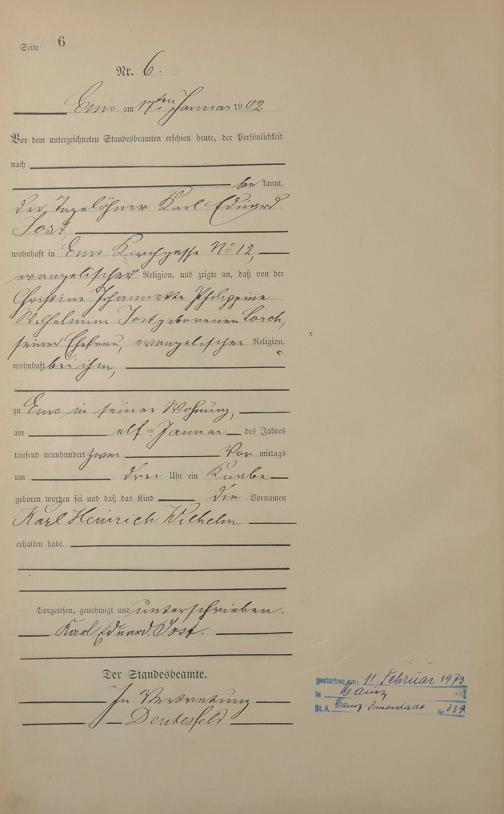 Seite 6
Nr. 6.
Ems am 17ten Januar 1902
Vor dem unterzeichneten Standesbeamten erschien heute, der Persönlichkeit
nach
be kannt,
der Tagelöhner Karl Eduard
Jost
wohnhaft in Ems Kirchgasse No 12,
evangelischer Religion, und zeigte an, daß von der
Christine Johannette Philippine
Wilhelmine Jost geborenen Lorch,
seiner Ehefrau, evangelischer Religion,
wohnhaft bei ihm,
zu Ems in seiner Wohnung,
am elften Januar des Jahres
tausend neunhundert zwei Vor mittags
um drei Uhr ein Knabe
geboren worden sei und daß das Kind die Vornamen
Karl Heinrich Wilhelm
erhalten habe.
Vorgelesen, genehmigt und unterschrieben.
Karl Eduard Jost.
Der Standesbeamte.
In Vertretung
Gestorben am: 11. Februar 1973
in Mainz
St.A. Mainz-Innenstadt Nr. 339